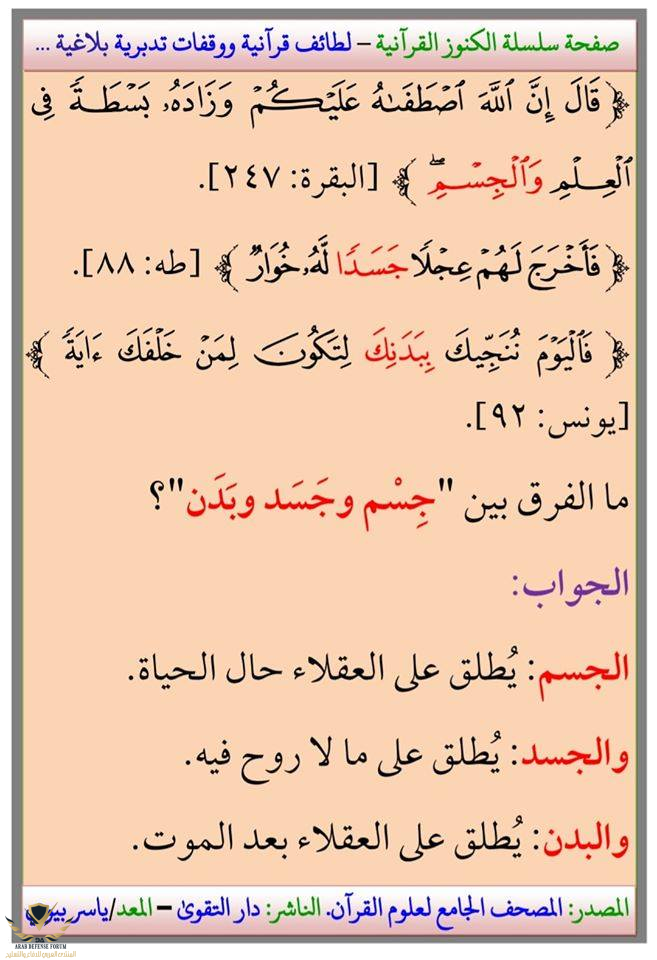 صفحة سلسلة الكنوز القرآنية – لطائف قرآنية ووقفات تدبرية بلاغية ...
﴿ قَالَ إِنَّ ٱللَّهَ ٱصْطَفَىٰهُ عَلَيْكُمْ وَزَادَهُۥ بَسْطَةً فِى
ٱلْعِلْمِ وَٱلْجِسْمِ ۖ ﴾ [البقرة: ٢٤٧].
﴿ فَأَخْرَجَ لَهُمْ عِجْلًا جَسَدًا لَّهُۥ خُوَارٌ ﴾ [طه: ٨٨].
﴿ فَٱلْيَوْمَ نُنَجِّيكَ بِبَدَنِكَ لِتَكُونَ لِمَنْ خَلْفَكَ ءَايَةً ﴾
[يونس: ٩٢].
ما الفرق بين "جِسْم وجَسَد وبَدَن"؟
الجواب:
الجسم: يُطلق على العقلاء حال الحياة.
والجسد: يُطلق على ما لا روح فيه.
والبدن: يُطلق على العقلاء بعد الموت.
المصدر: المصحف الجامع لعلوم القرآن. الناشر: دار التقوىٰ – المعد/ياسر
ARAB DEFENSE FORUM
المنتدى العربي للدفاع والتسليح